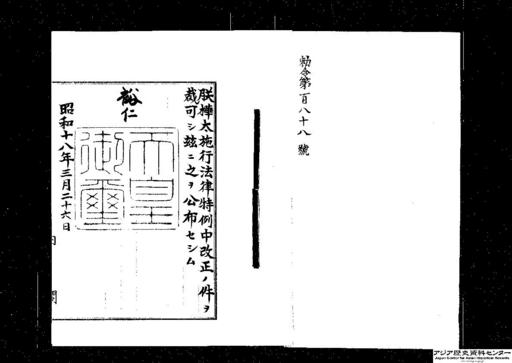 勅令第百八十八號
朕樺太施行法律特例中改正ノ件ヲ
裁可シ玆ニ之ヲ公布セシム
裕仁
天皇御璽
昭和十八年三月二十六日
内閣
アジア歴史資料センター
Japan Center for Asian Historical Records